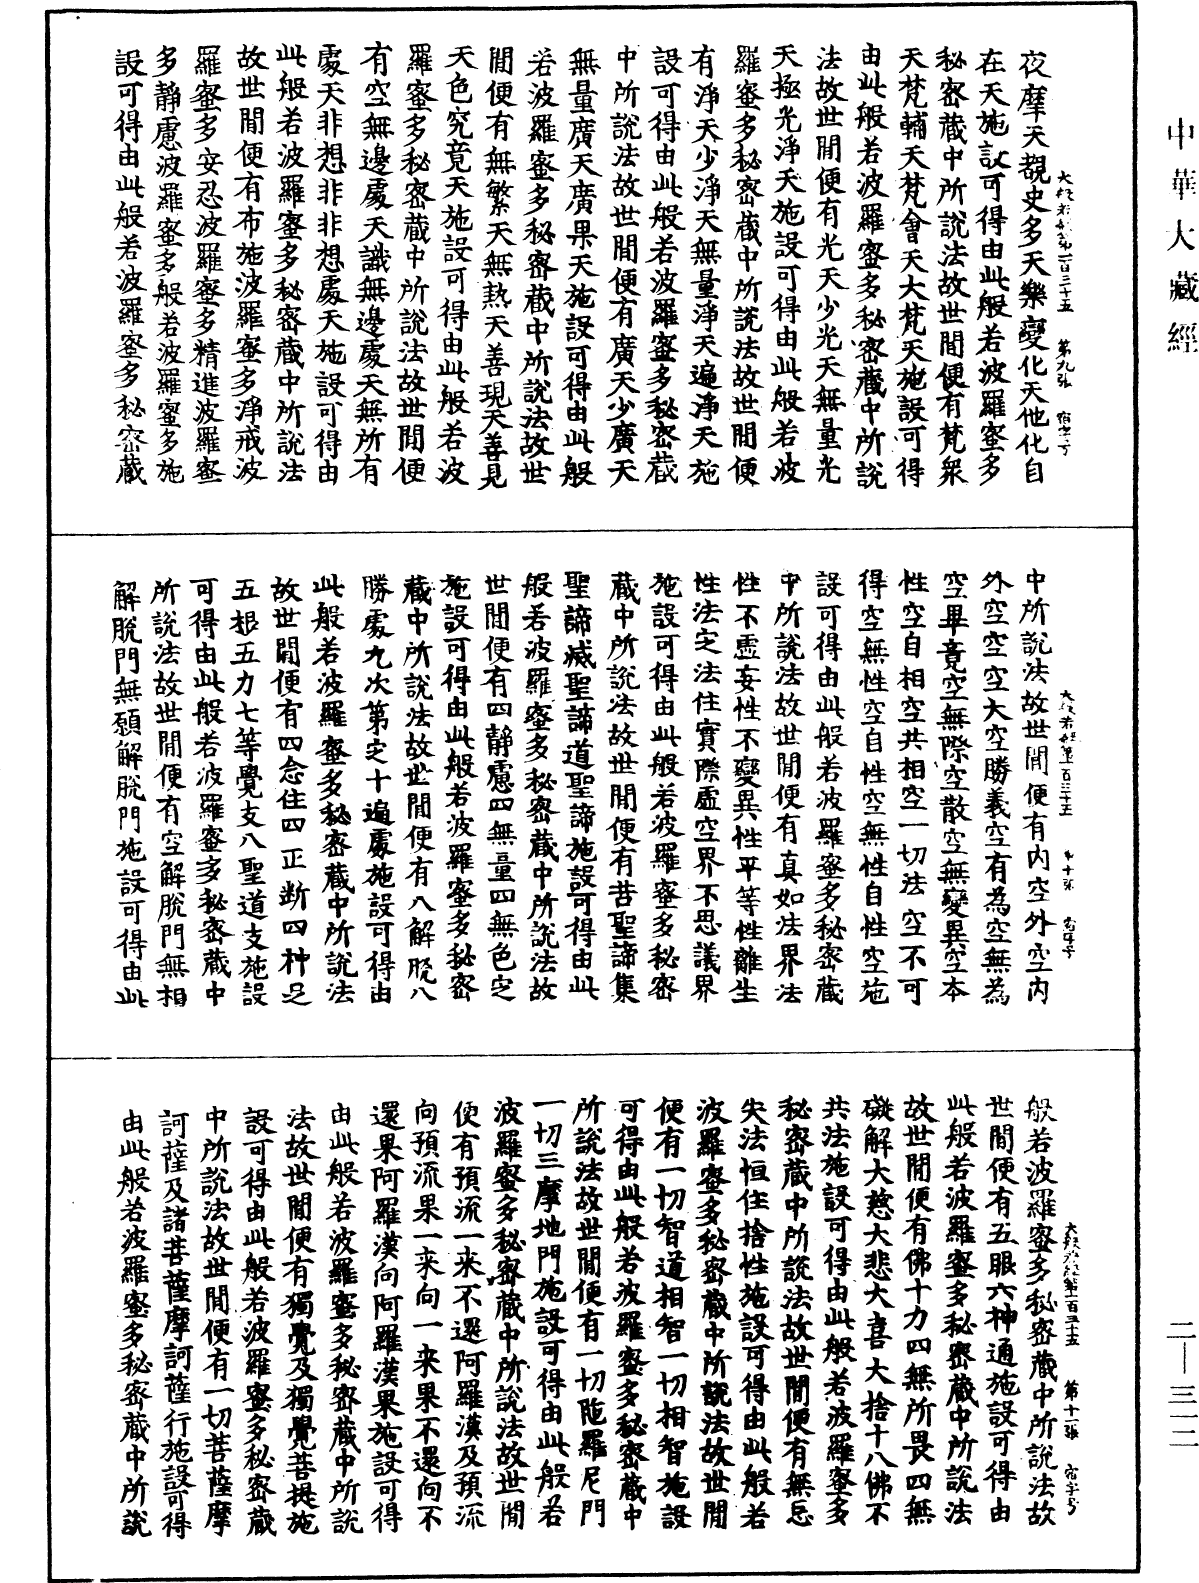 中華大藏經
夜摩天覩史多天樂變化天他化自
在天施設可得由此般若波羅蜜多
秘密藏中所說法故世間便有梵衆
天梵輔天梵會天大梵天施設可得
由此般若波羅蜜多秘密藏中所說
法故世間便有光天少光天無量光
天極光淨天施設可得由此般若波
羅蜜多秘密藏中所說法故世間便
有淨天少淨天無量淨天遍淨天施
設可得由此般若波羅蜜多秘密藏
中所說法故世間便有廣天少廣天
無量廣天廣果天施設可得由此般
若波羅蜜多秘密藏中所說法故世
間便有無繁天無熱天善現天善見
天色究竟天施設可得由此般若波
羅蜜多秘密藏中所說法故世間便
有空無邊處天識無邊處天無所有
處天非想非非想處天施設可得由
此般若波羅蜜多秘密藏中所說法
故世間便有布施波羅蜜多淨戒波
羅蜜多安忍波羅蜜多精進波羅蜜
多靜慮波羅蜜多般若波羅蜜多施
設可得由此般若波羅蜜多秘密藏
中所說法故世間便有內空外空內
外空空空大空勝義空有為空無為
空畢竟空無際空散空無變異空本
性空自相空共相空一切法空不可
得空無性空自性空無性自性空施
設可得由此般若波羅蜜多秘密藏
中所說法故世間便有真如法界法
性不虛妄性不變異性平等性離生
性法定法住實際虛空界不思議界
施設可得由此般若波羅蜜多秘密
藏中所說法故世間便有苦聖諦集
聖諦滅聖諦道聖諦施設可得由此
般若波羅蜜多秘密藏中所說法故
世間便有四靜慮四無量四無色定
施設可得由此般若波羅蜜多秘密
藏中所說法故世間便有八解脫八
勝處九次第定十遍處施設可得由
此般若波羅蜜多秘密藏中所說法
故世間便有四念住四正斷四神足
五根五力七等覺支八聖道支施設
可得由此般若波羅蜜多秘密藏中
所說法故世間便有空解脫門無相
解脫門無願解脫門施設可得由此
般若波羅蜜多秘密藏中所說法故
世間便有五眼六神通施設可得由
此般若波羅蜜多秘密藏中所說法
故世間便有佛十力四無所畏四無
礙解大慈大悲大喜大捨十八佛不
共法施設可得由此般若波羅蜜多
秘密藏中所說法故世間便有無忘
失法恒住捨性施設可得由此般若
波羅蜜多秘密藏中所說法故世間
便有一切智道相智一切相智施設
可得由此般若波羅蜜多秘密藏中
所說法故世間便有一切陁羅尼門
一切三摩地門施設可得由此般若
波羅蜜多秘密藏中所說法故世間
便有預流一来不還阿羅漢及預流
向預流果一来向一来果不還向不
還果阿羅漢向阿羅漢果施設可得
由此般若波羅蜜多秘密藏中所說
法故世間便有獨覺及獨覺菩提施
設可得由此般若波羅蜜多秘密藏
中所說法故世間便有一切菩薩摩
訶薩及諸菩薩摩訶薩行施設可得
由此般若波羅蜜多秘密藏中所說
二—三一二